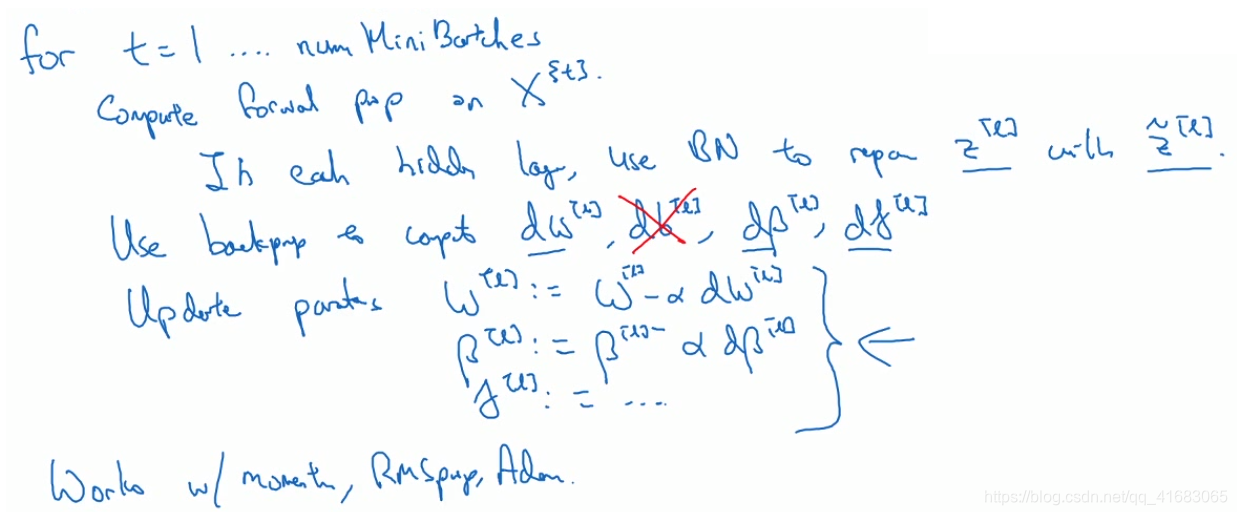 for t = 1 .... num MiniBatches
Compute forwal prop on X^{t}.
In eah hidden lay, use BN to repar z^[l] with z̃^[l].
Use backprop to compt dw^[l], db^[l], dβ^[l], dγ^[l]
Update parates W^[l] := W^[l] - α dw^[l]
β^[l] := β^[l] - α dβ^[l]
γ^[l] := ...
←
Works w/ momentu, RMSprop, Adam.
https://blog.csdn.net/qq_41683065